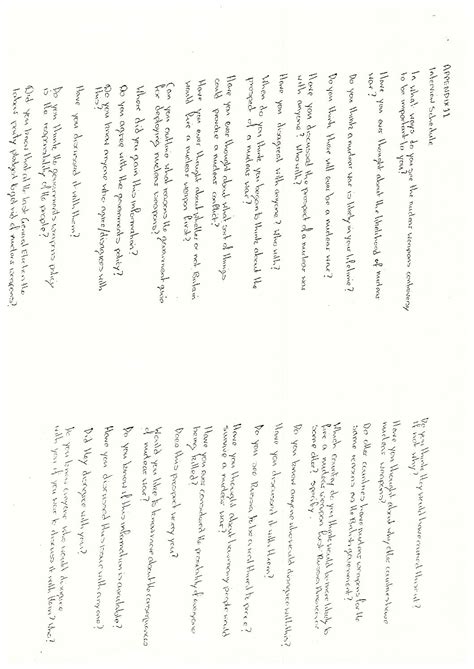 APPENDIX 11
Interview Schedule
In what ways do you see the nuclear weapons controversy
to be important to you?
Have you ever thought about the likelihood of nuclear
war?
Do you think a nuclear war is likely in your lifetime?
Do you think there will ever be a nuclear war?
Have you discussed the prospect of a nuclear war
with anyone? Who with?
Have you disagreed with anyone? Who with?
When do you think you began to think about the
prospect of a nuclear war?
Have you ever thought about what sort of things
could provoke a nuclear conflict?
Have you ever thought about whether or not Britain
would fire a nuclear weapon first?
Can you outline what reasons the government give
for deploying nuclear weapons?
Where did you gain this information?
Do you agree with the government's policy?
Do you know anyone who agree/disagrees with
this?
Have you discussed it with them?
Do you think the government's weapons policy
is the responsibility of the people?
Did you know that at the last General Election the
Labour party pledged to get rid of nuclear weapons?
Do you think they would have carried this out?
If not why?
Have you thought about why other countries have
nuclear weapons?
Do other countries have nuclear weapons for the
same reasons as the British government?
Which country do you think would be more likely to
fire a nuclear weapon first
some other? Specify
Do you know anyone who would disagree with this?
Have you discussed it with them?
Do you see Russia to be
Have you thought about how many people would
survive a nuclear war?
Have you ever considered the probability of everyone
being killed?
Does this prospect worry you?
Would you like to know more about the consequences
of nuclear war?
Do you know if this information is available?
Have you discussed this issue with anyone?
Did they disagree with you?
Do you know anyone who would disagree
with you if you were to discuss it with them? Who?